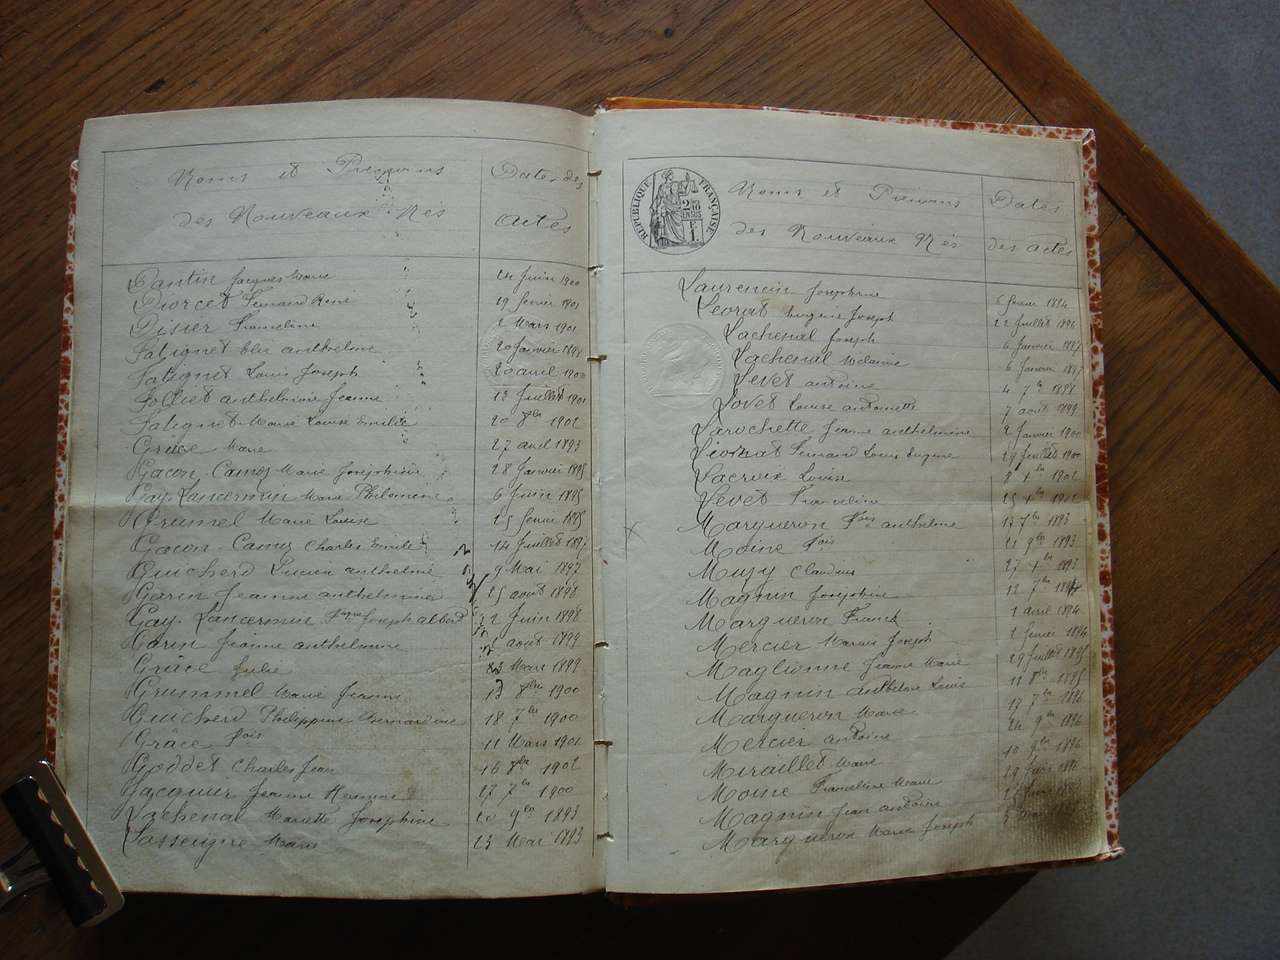 Noms et Prénoms
des Nouveaux Nés
Dates des
actes
Dantin Jacques Marie 24 Juin 1900
Diorcet Fernand René 19 fevrier 1901
Disier Francline 2 Mars 1901
Falignet anthelme 20 Janvier 1898
Falignet Louis Joseph 20 avril 1900
Folliet anthelmine Jeanne 12 Juillet 1901
Falignet Marie Louise Emilie 20 8bre 1902
Grâce Marie 27 avril 1893
Gacon-Camoz Marie Joséphine 28 Janvier 1895
Gay-Lancermin Marie Philomène 6 Juin 1895
Grumel Marie Louise 25 fevrier 1895
Gacon-Camoz Charles Emile 14 Juillet 1897
Guicherd Lucien anthelme 9 Mai 1897
Garin Jeanne anthelmine 25 août 1898
Gay-Lancermin Joseph albert 2 Juin 1898
Garin Jeanne anthelmine août 1899
Grâce Julie Mars 1899
Grummel Marie Jeanne 12 8bre 1900
Guicherd Philippine Bernardine 18 7bre 1900
Grâce fois 11 Mars 1901
Goddet Charles Jean 16 8bre 1902
Jacquier Jeanne 27 7bre 1900
Lachenal Mariette Joséphine 20 9bre 1893
Lasseigne Marie 23 Mai 1893
RÉPUBLIQUE FRANÇAISE
Noms et Prénoms
des Nouveaux Nés
Dates
des actes
Laurencin Joséphine 6 fevrier 1894
Leorat Eugène Joseph 22 Juillet 1896
Lachenal Joseph 6 Janvier 1897
Lachenal Mélanie 6 Janvier 1897
Levet antoine 4 7bre 1898
Lovet Louise antoinette 7 août 1899
Larochette Jeanne anthelmine 2 Janvier 1900
Liorat Fernand Louis Eugène 29 Juillet 1900
Lacroix Louise 1902
Levet Francline
Margueron fois anthelme 17 7bre 1893
Moine fois 21 9bre 1893
Mujy Claudius 27 1893
Magnin Joséphine 12 7bre
Margueron Franck 1 avril 1894
Mercier Marius Joseph 2 fevrier 1894
Maglionne Jeanne Marie 29 Juillet 1895
Magnin anthelme Louis 11 8bre 1895
Margueron Marie 17 7bre 1896
Mercier antoine 24 9bre 1896
Miraillet Marie 10 9bre 1896
Moine Francline Marie
Magnin Jean antoine
Margueron Marie Joseph